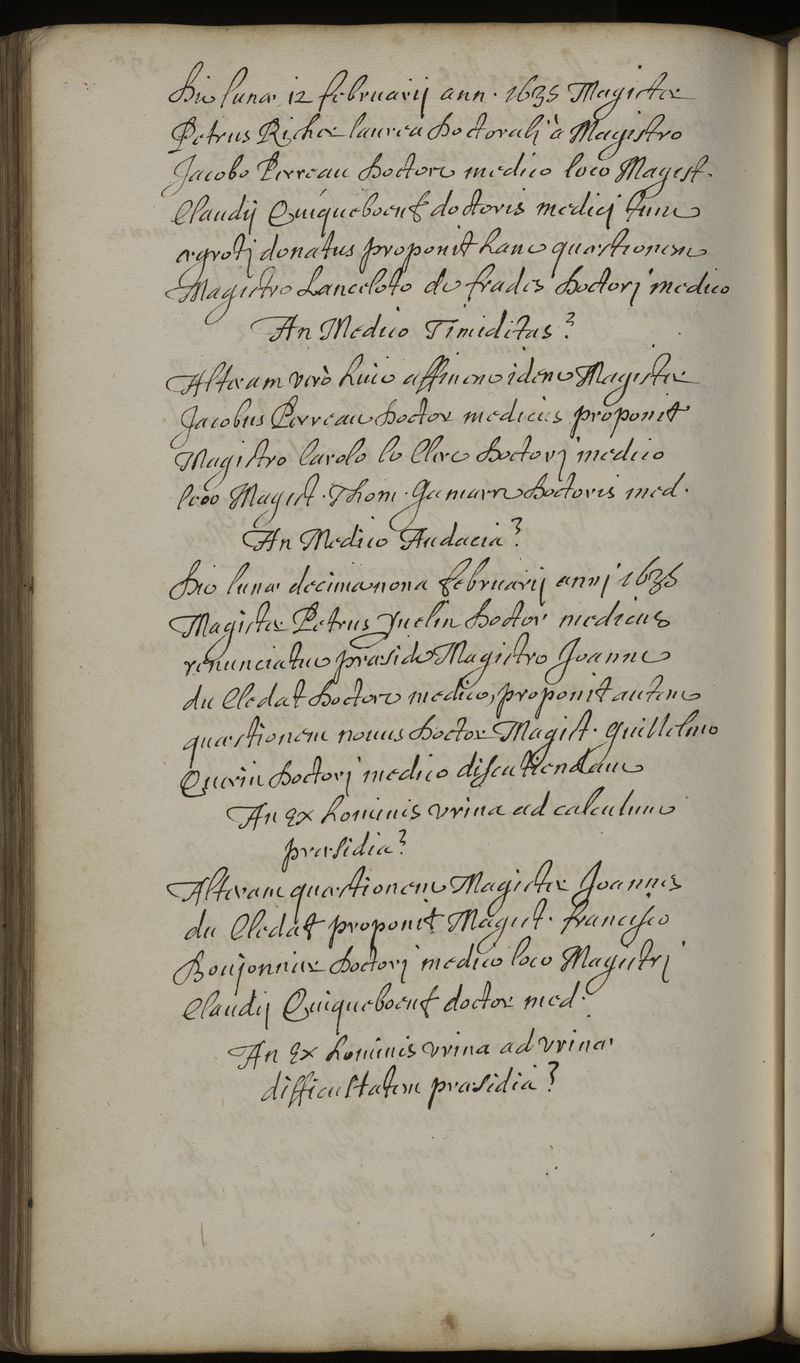 Die lunæ 12 februarij ann. 1635 Magister
Petrus Richer laurea doctorali à Magistro
Jacobo Perreau doctore medico loco Magist.
Claudij Quiqueboeuf doctoris medici tunc
ægroti donatus proponit hanc quæstionem
Magistro Lanceloto de frades doctori medico
An Medico Timiditas?
Alteram verò huic affinem idem Magister
Jacobus Perreau doctor medicus proponit
Magistro Carolo le Clerc doctori medico
loco Magist. Thom. Gamare doctoris med.
An Medico Audacia?
Die lunæ decima nona februarij anni 1635
Magister Petrus Yuelin doctor medicus
renunciatur præside Magistro Joanne
du Cledat doctore medico, proponit autem
quæstionem nouus doctor Magist. Guillelmo
Querin doctori medico discutiendam
An Ex hominis vrina ad calculum
præsidia?
Alteram quæstionem Magister Joannes
du Cledat proponit Magist. francisco
Boujonnier doctori medico loco Magistri
Claudij Quiqueboeuf doctor med.
An Ex hominis vrina ad vrinæ
difficultatem præsidia?